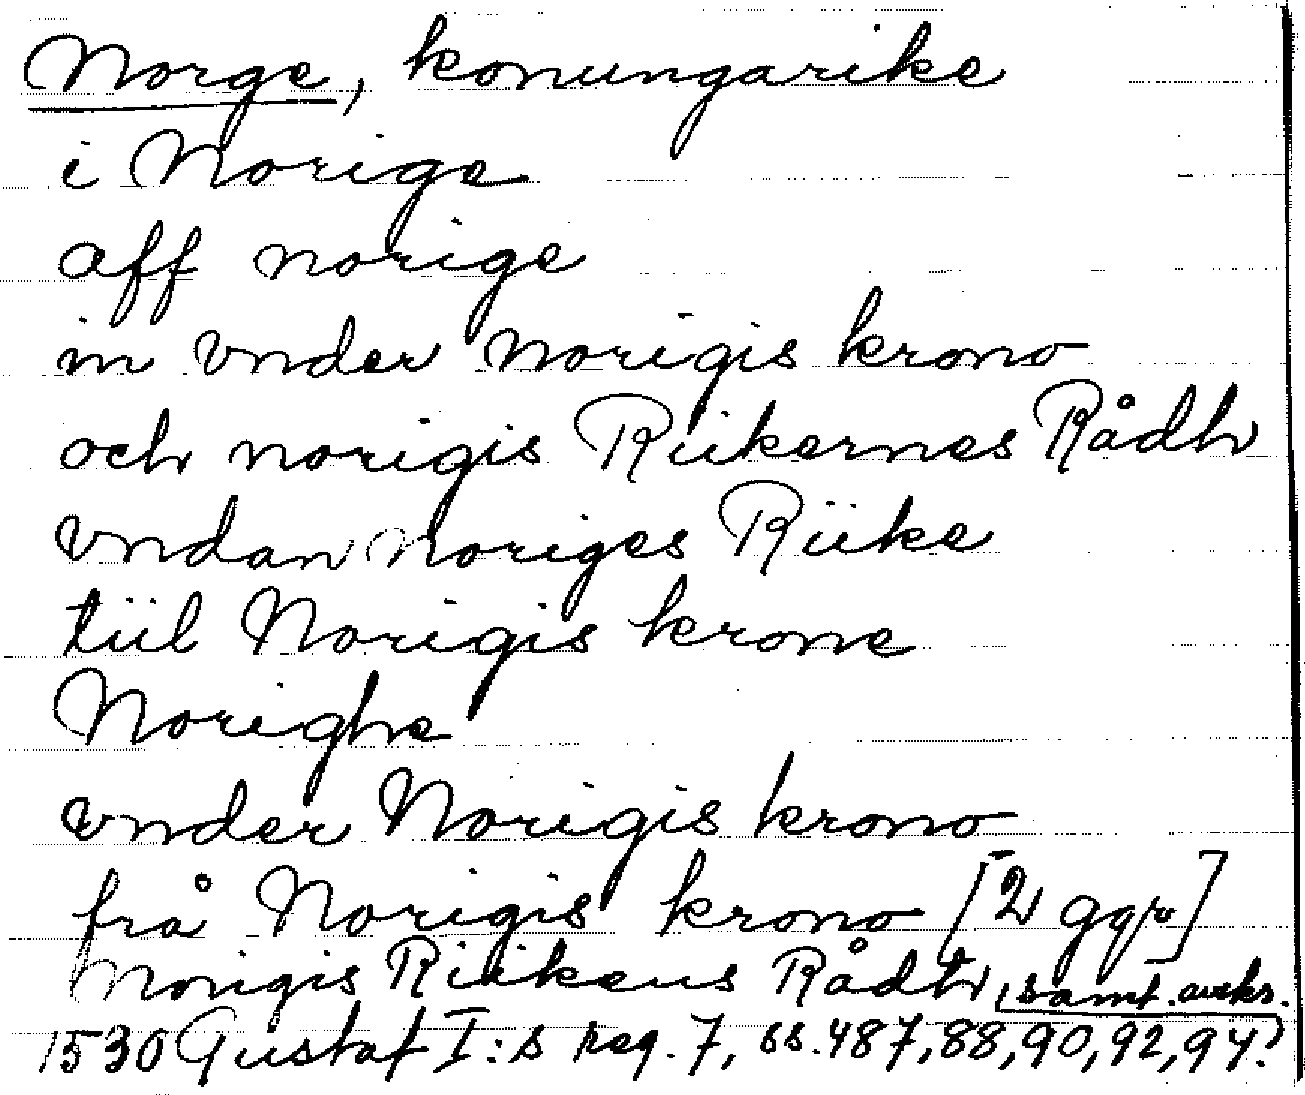 Norge, konungarike
i Norige
aff norige
in vnder Norigis krono
och norigis Riikernes Rådh
vndan Noriges Riike
tiil Norigis krone
Norighe
vnder Norigis krono
frå Norigis krono [2 ggr]
Norigis Riikens Rådh, samt. avskr.
1530 Gustaf I:s reg. 7, ss. 487, 88, 90, 92, 94.